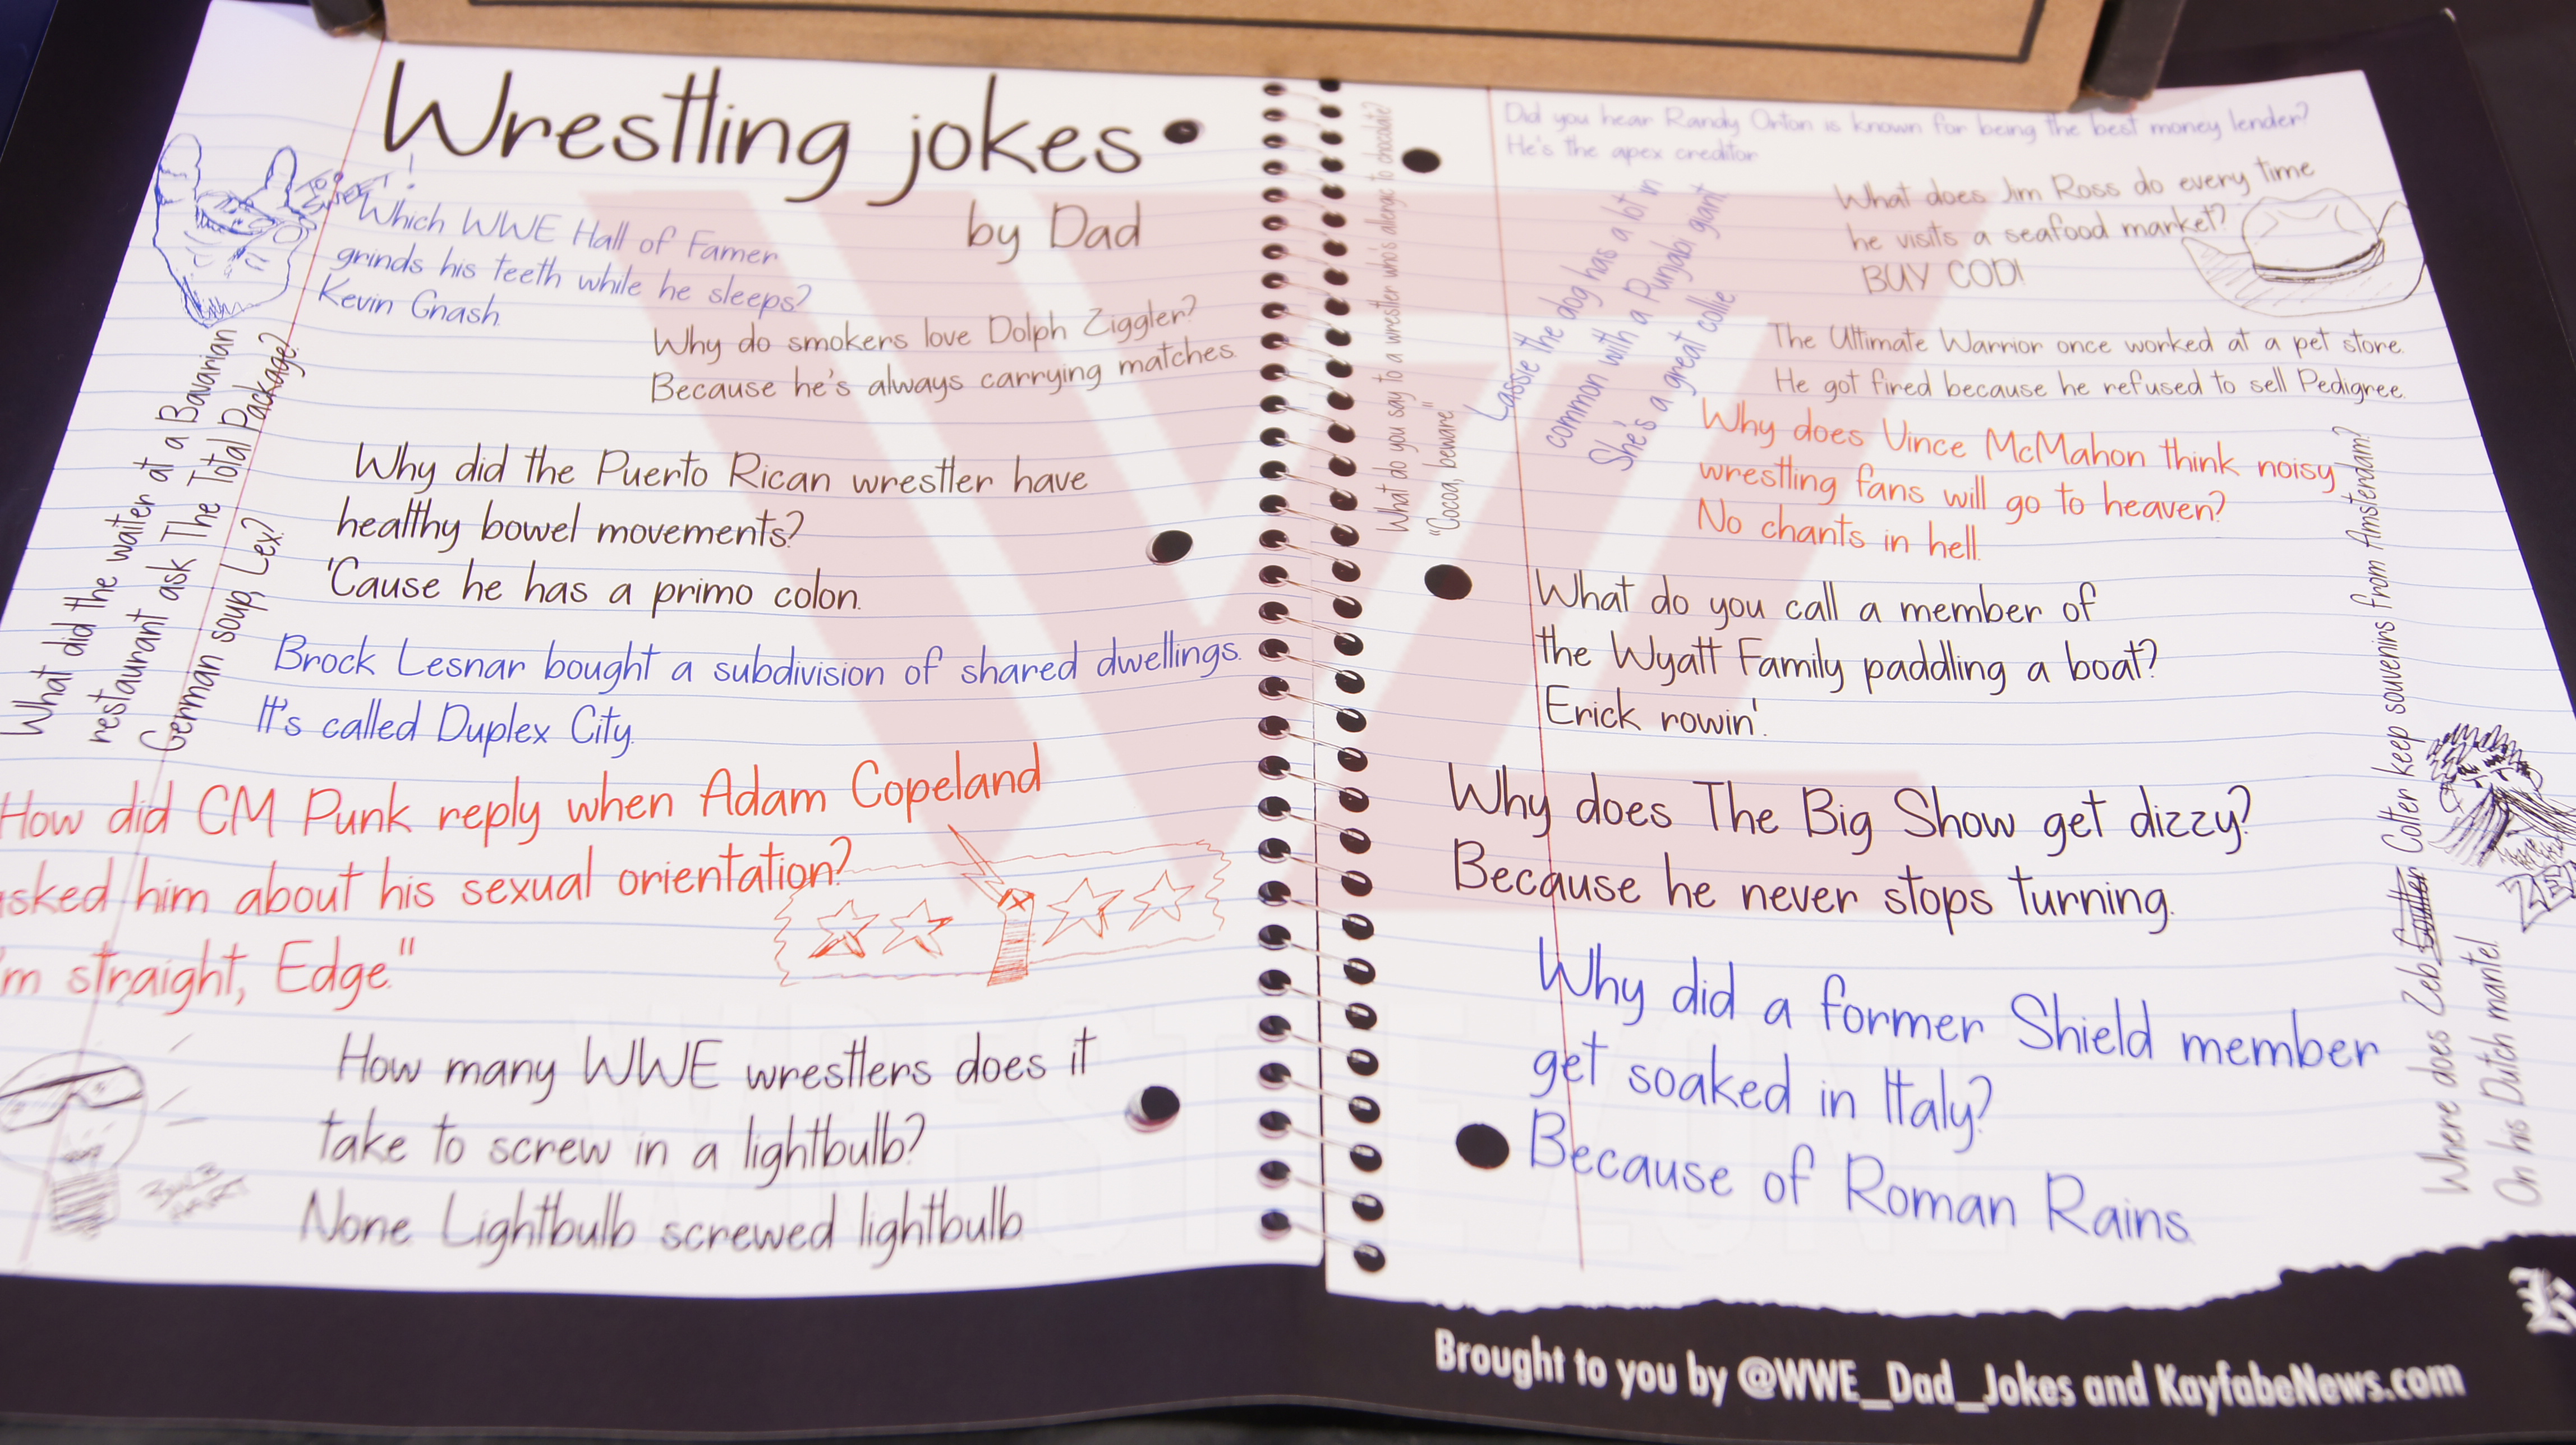 Wrestling jokes
by Dad
TOO SWEET!
Which WWE Hall of Famer
grinds his teeth while he sleeps?
Kevin Gnash.
Why do smokers love Dolph Ziggler?
Because he's always carrying matches.
What did the waiter at a Bavarian
restaurant ask The Total Package?
German soup, Lex?
Why did the Puerto Rican wrestler have
healthy bowel movements?
'Cause he has a primo colon.
Brock Lesnar bought a subdivision of shared dwellings.
It's called Duplex City.
How did CM Punk reply when Adam Copeland
asked him about his sexual orientation?
I'm straight, Edge."
How many WWE wrestlers does it
take to screw in a lightbulb?
None. Lightbulb screwed lightbulb
BULB
HART
What do you say to a wrestler who's allergic to chocolate?
"Cocoa, beware."
Did you hear Randy Orton is known for being the best money lender?
He's the apex creditor
Lassie the dog has a lot in
common with a Punjabi giant
She's a great collie
What does Jim Ross do every time
he visits a seafood market?
BUY COD!
The Ultimate Warrior once worked at a pet store.
He got fired because he refused to sell Pedigree.
Why does Vince McMahon think noisy
wrestling fans will go to heaven?
No chants in hell.
What do you call a member of
the Wyatt Family paddling a boat?
Erick rowin'.
Why does The Big Show get dizzy?
Because he never stops turning.
Why did a former Shield member
get soaked in Italy?
Because of Roman Rains.
Where does Zeb Coulter Colter keep souvenirs from Amsterdam?
On his Dutch mantel.
Brought to you by @WWE_Dad_Jokes and KayfabeNews.com